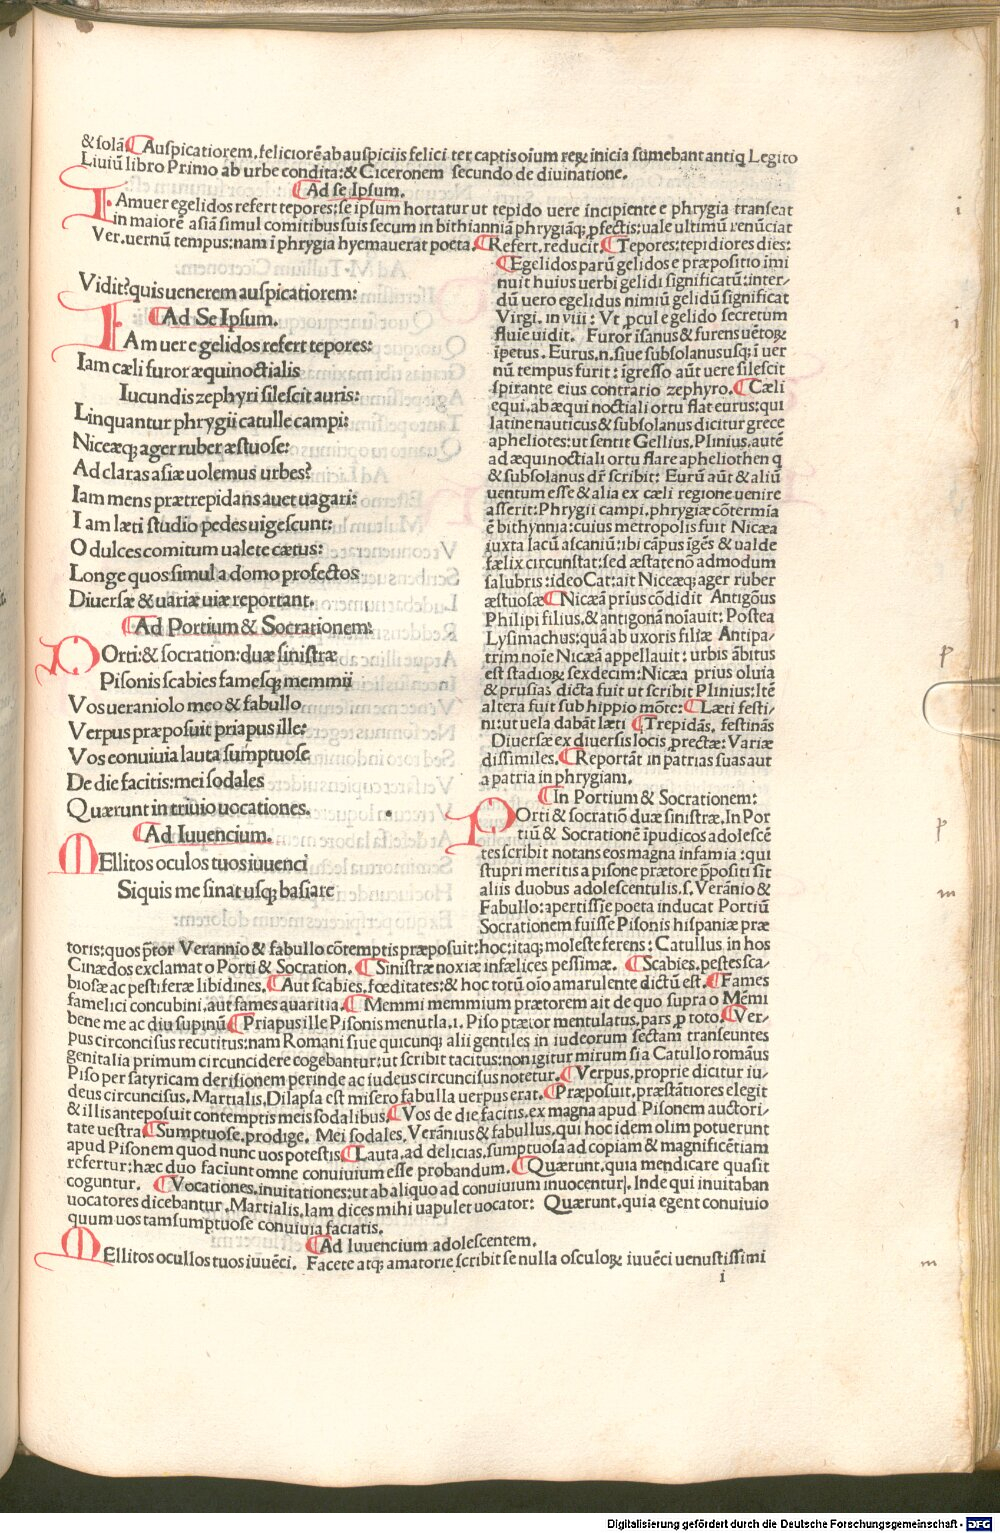 & solā. Auspicatiorem. feliciorē ab auspiciis felici ter captis oium reꝝ inicia sumebant antiq̃ Legito
Liuiū libro Primo ab urbe condita: & Ciceronem secundo de diuinatione.
Ad se Ipsum.
IAm uer egelidos refert tepores: se ipsum hortatur ut tepido uere incipiente e phrygia transeat
in maiorē asiā simul comitibus suis secum in bithianiā phrygiāq; ꝓfectis: uale ultimū renūciat
Ver. uernū tempus: nam ī phrygia hyemauerat poeta. Refert. reducit. Tepores: tepidiores dies:
Vidit? quis uenerem auspicatiorem:
Ad Se Ipsum.
IAm uer egelidos refert tepores:
Iam cæli furor æquinoctialis
Iucundis zephyri silescit auris:
Linquantur phrygii catulle campi:
Niceæq; ager ruber æstuose:
Ad claras asiæ uolemus urbes?
Iam mens prætrepidans auet uagari:
Iam læti studio pedes uigescunt:
O dulces comitum ualete cætus:
Longe quos simul a domo profectos
Diuersæ & uariæ uiæ reportant.
Ad Portium & Socrationem:
POrti: & socration: duæ sinistræ
Pisonis scabies famesq; memmii
Vos ueraniolo meo & fabullo
Verpus præposuit priapus ille:
Vos conuiuia lauta sumptuose
De die facitis: mei sodales
Quærunt in triuio uocationes.
Ad Iuuencium.
MEllitos oculos tuos iuuenci
Siquis me sinat usq; basiare
Egelidos parū gelidos e præpositio imi
nuit huius uerbi gelidi significatū: inter-
dū uero egelidus nimiū gelidū significat
Virgi. in viii: Vt ꝓcul egelido secretum
fluie uidit. Furor isanus & furens uētoꝝ
ipetus. Eurus. n. siue subsolanus usq; ī uer
nū tempus furit: igresso aūt uere silescit
spirante eius contrario zephyro. Cæli
equi. ab æqui noctiali ortu flat eurus: qui
latine nauticus & subsolanus dicitur grece
apheliotes: ut sentit Gellius. Plinius. autē
ad æquinoctiali ortu flare apheliothen q̃
& subsolanus dr̄ scribit: Eurū aūt & aliū
uentum esse & alia ex cæli regione uenire
asserit: Phrygii campi. phrygiæ cōtermia
ē bithynnia: cuius metropolis fuit Nicæa
iuxta lacū ascaniū: ibi cāpus īgēs & ualde
fælix circunstat: sed æstate nō admodum
salubris: ideo Cat: ait Niceæq; ager ruber
æstuosæ. Nicæā prius cōdidit Antigōus
Philipi filius. & antigonā noīauit: Postea
Lysimachus: quā ab uxoris filiæ Antipa-
trim noīe Nicæā appellauit: urbis ābitus
est stadioꝝ sexdecim: Nicæa prius oluia
& prusias dicta fuit ut scribit Plinius: Itē
altera fuit sub hippio mōte: Læti festi-
ni: ut uela dabāt læti Trepidās. festinās
Diuersæ ex diuersis locis ꝓrectæ: Variæ
dissimiles. Reportāt in patrias suas aut
a patria in phrygiam.
In Portium & Socrationem:
POrti & socratiō duæ sinistræ. In Por
tiū & Socrationē ipudicos adolescē
tes scribit notans eos magna infamia: qui
stupri meritis a pisone prætore ꝓpositi sit
aliis duobus adolescentulis. s. Verānio &
Fabullo: apertissie poeta inducat Portiū
Socrationem fuisse Pisonis hispaniæ præ
toris: quos p̄tor Verannio & fabullo cōtemptis præposuit: hoc: itaq; moleste ferens: Catullus in hos
Cinædos exclamat o Porti & Socration. Sinistræ noxiæ infælices pessimæ. Scabies. pestes sca-
biosæ ac pestiferæ libidines. Aut scabies. fœditates: & hoc torū oīo amarulente dictū est. Fames
famelici concubini. aut fames auaritia. Memmi memmium prætorem ait de quo supra o Mēmi
bene me ac diu supinū. Priapus ille Pisonis mentula. i. Piso prætor mentulatus. pars ꝓ toto. Ver-
pus circoncisus recutitus: nam Romani siue quicunq; alii gentiles in iudeorum sectam transeuntes
genitalia primum circuncidere cogebantur: ut scribit tacitus: non igitur mirum si a Catullo romāus
Piso per satyricam derisionem perinde ac iudeus circuncisus notetur. Verpus. proprie dicitur iu-
deus circuncisus. Martialis. Dilapsa est misero fabulla uerpus erat. Præposuit. præstātiores elegit
& illis anteposuit contemptis meis sodalibus. Vos de die facitis. ex magna apud Pisonem auctori-
tate uestra. Sumptuose. prodige. Mei sodales. Verānius & fabullus. qui hoc idem olim potuerunt
apud Pisonem quod nunc uos potestis. Lauta. ad delicias. sumptuosa ad copiam & magnificētiam
refertur: hæc duo faciunt omne conuiuium esse probandum. Quærunt. quia mendicare quasit
coguntur. Vocationes. inuitationes: ut ab aliquo ad conuiuium inuocentur|. Inde qui inuitaban
uocatores dicebantur. Martialis. Iam dices mihi uapulet uocator: Quærunt. quia egent conuiuio
quum uos tam sumptuose conuiuia faciatis.
Ad Iuuencium adolescentem.
MEllitos ocullos tuos iuuēci. Facete atq; amatorie scribit se nulla osculoꝝ iuuēci uenustissimi
i
i
i
p
p
m
m
Digitalisierung gefördert durch die Deutsche Forschungsgemeinschaft - DFG